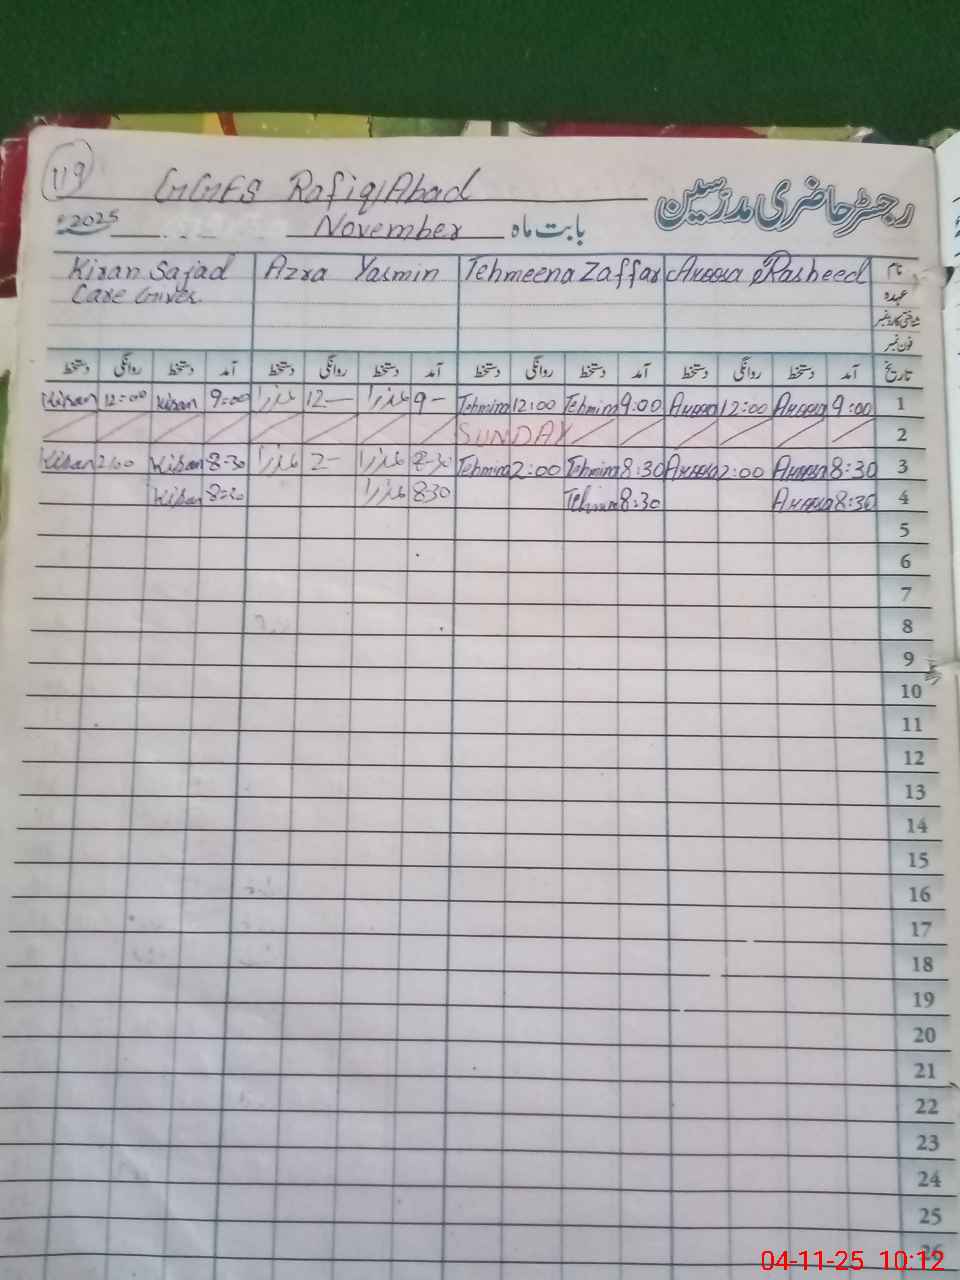 119
GGES Rafiq Abad
رجسٹر حاضری مدرسین
2025 November بابت ماہ
Kiran Sajad Azra Yasmin Tehmeena Zaffar Aroosa Rasheed نام
Care Giver عہدہ
شناختی کارڈ نمبر
فون نمبر
دستخط روانگی دستخط آمد دستخط روانگی دستخط آمد دستخط روانگی دستخط آمد دستخط روانگی دستخط آمد تاریخ
Kiran 12:00 Kiran 9:00 عذرا 12– عذرا 9– Tehmina 12:00 Tehmina 9:00 Aroosa 12:00 Aroosa 9:00 1
SUNDAY 2
Kiran 2:00 Kiran 8:30 عذرا 2– عذرا 8-30 Tehmina 2:00 Tehmina 8:30 Aroosa 2:00 Aroosa 8:30 3
Kiran 8:30 عذرا 8:30 Tehmina 8:30 Aroosa 8:30 4
5
6
7
8
9
10
11
12
13
14
15
16
17
18
19
20
21
22
23
24
25
26
04-11-25 10:12